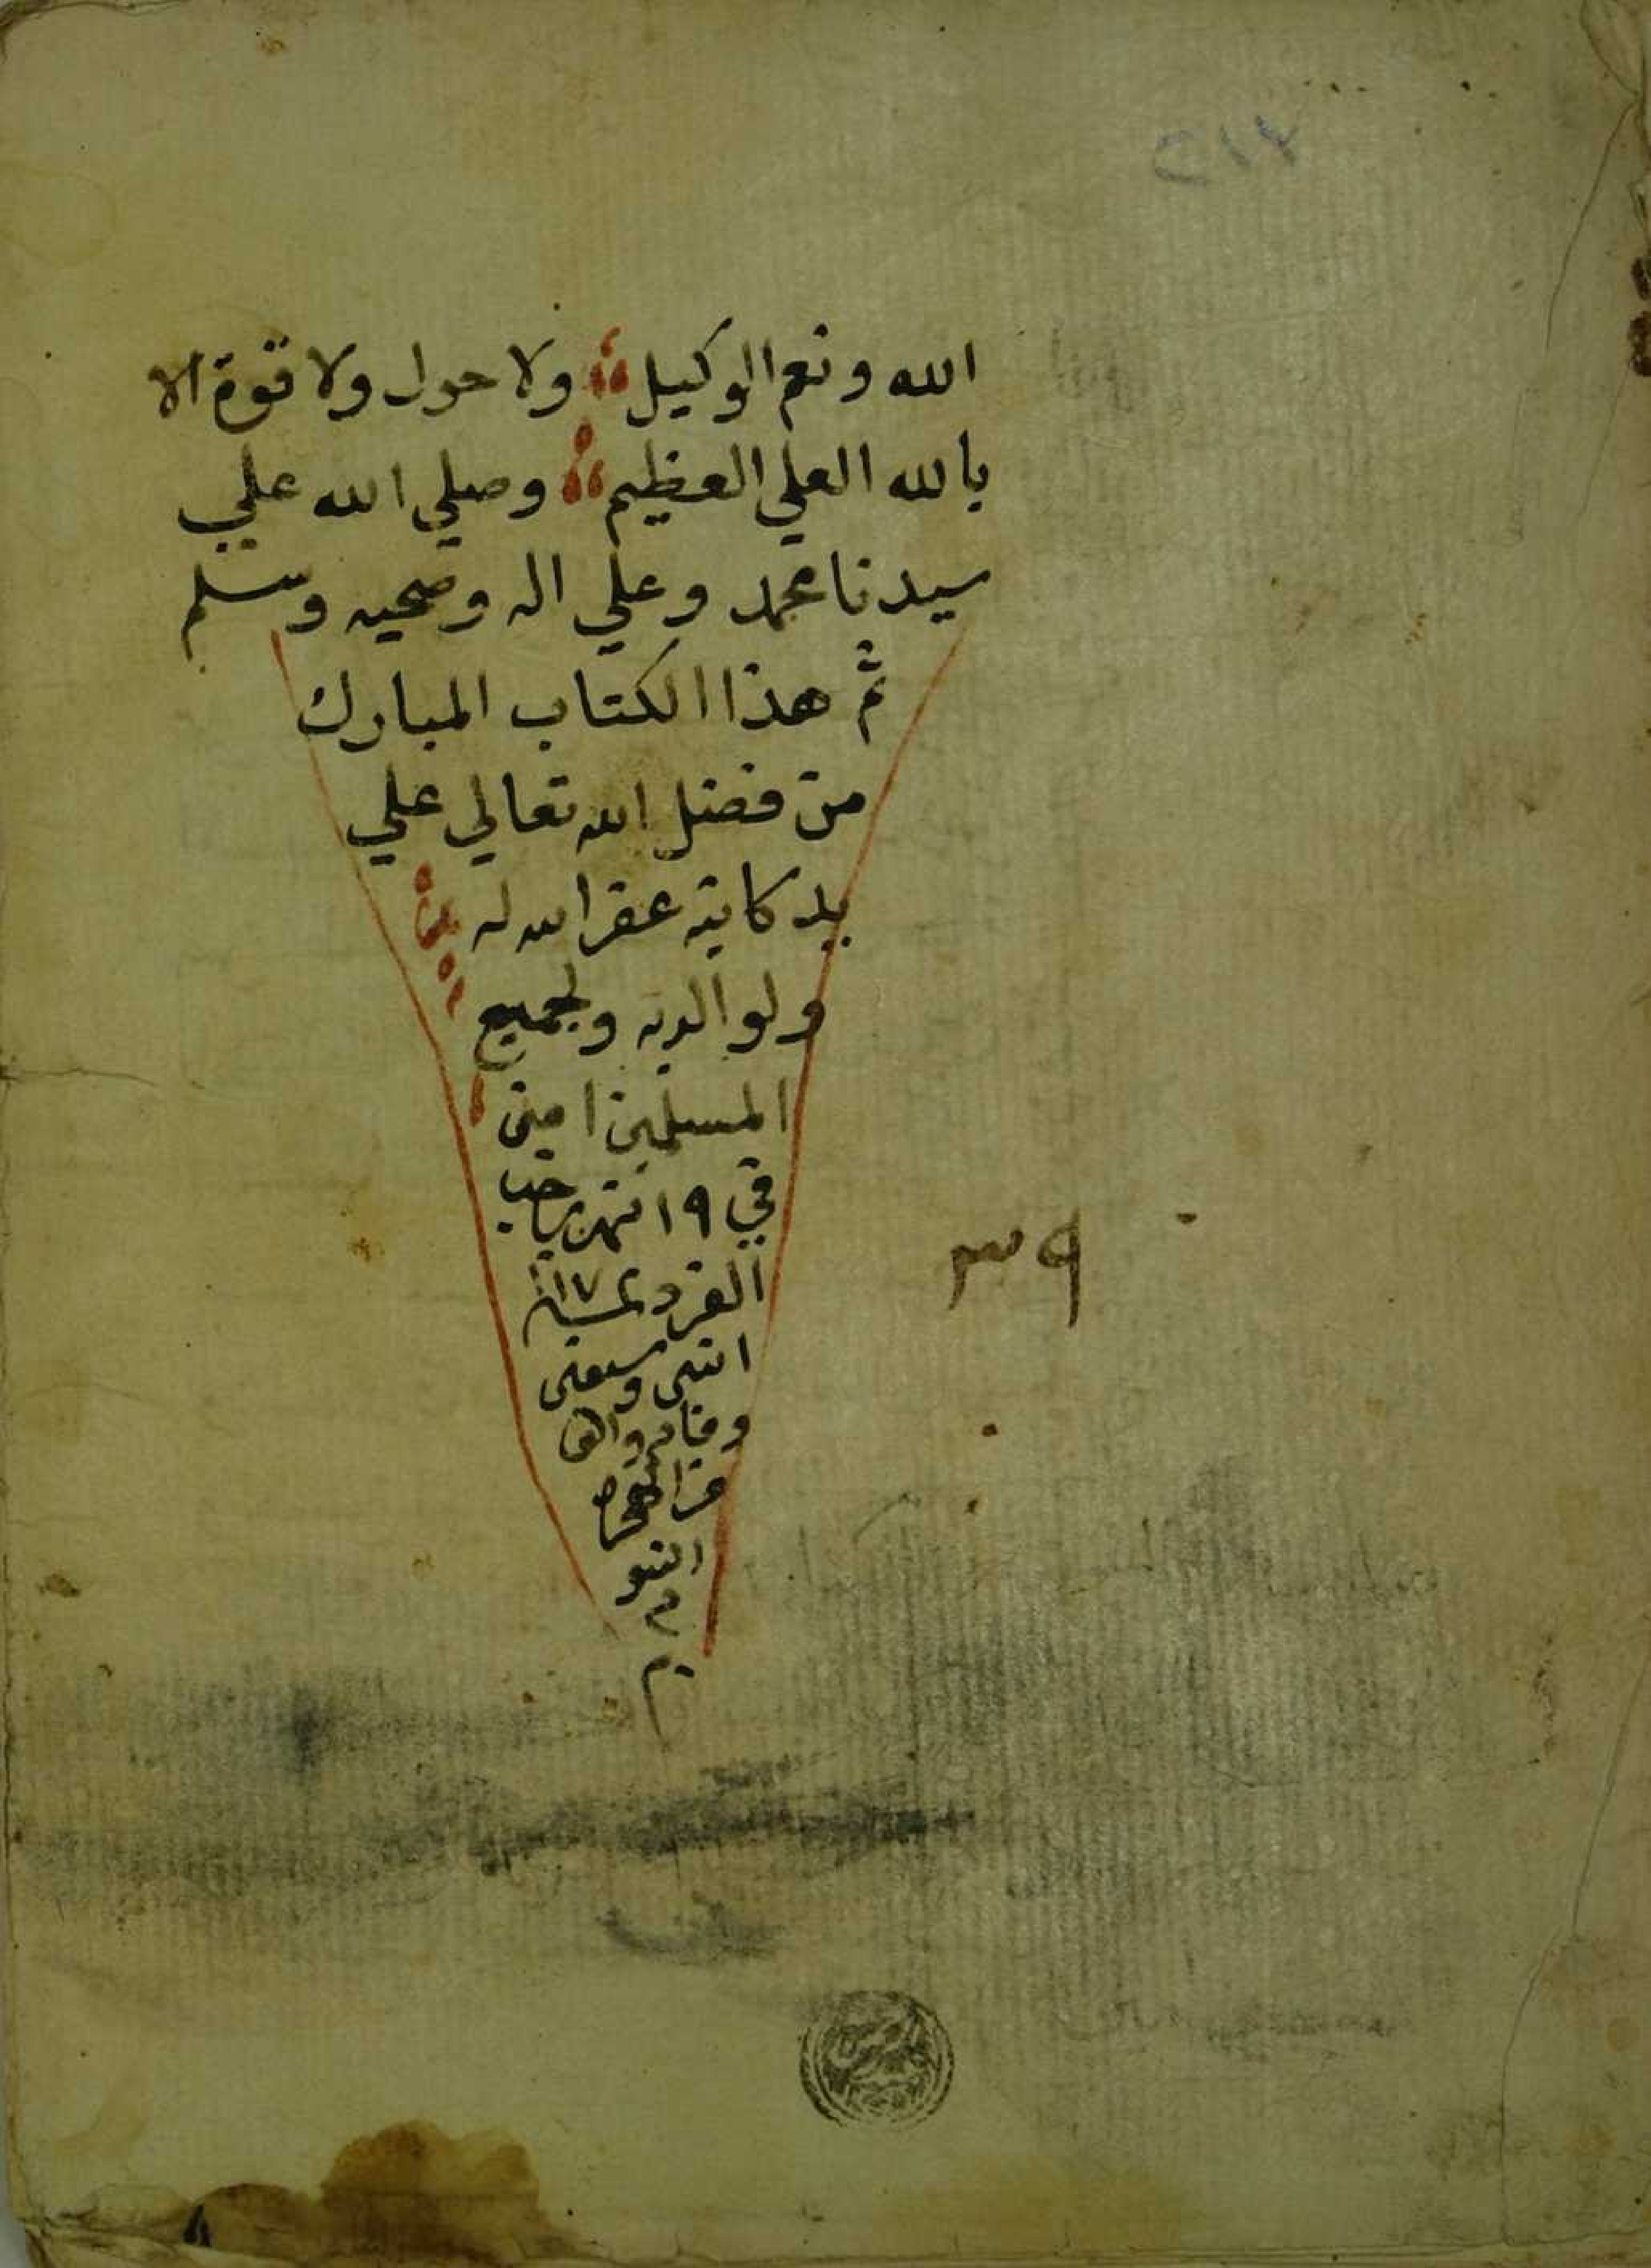 الله ونعم الوكيل ولا حول ولا قوة الا
بالله العلي العظيم وصلي الله علي
سيدنا محمد وعلي اله وصحبه وسلم
تم هذا الكتاب المبارك
من فضل الله تعالي علي
يد كاتبه غفر الله له
ولوالديه ولجميع
المسلمين امين
في ١٩ شهر رجب
الفرد
اثنى وسبعين
والف
من الهجرة
النبو
٣٩